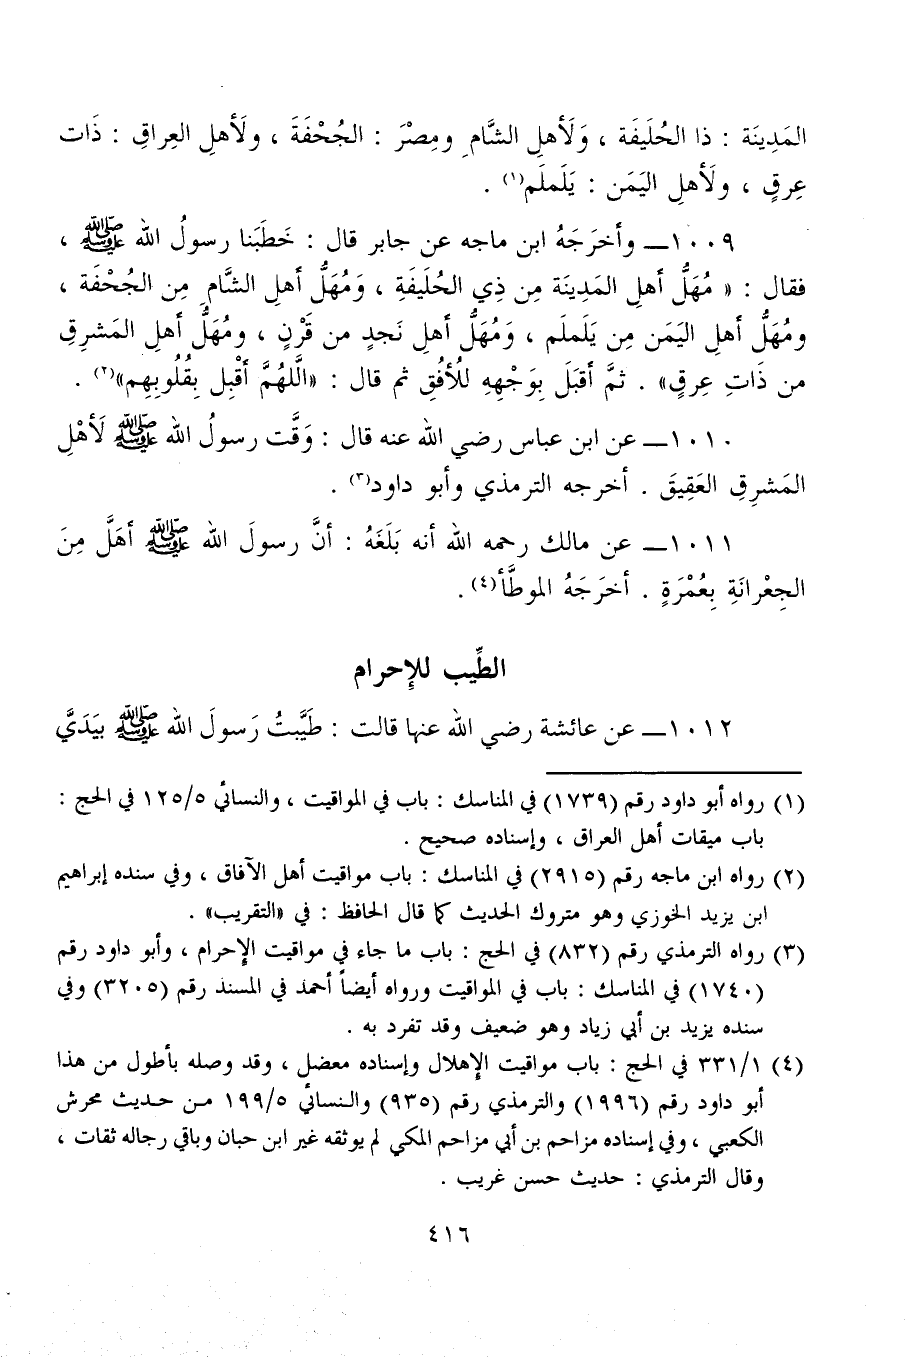 المَدِينَة : ذا الحُلَيفَة ، وَلَأهلِ الشَّامِ ومِصْرَ : الجُحْفَةَ ، ولَأهلِ العِراقِ : ذَات
عِرقٍ ، ولَأهلِ اليَمَن : يَلَملَم(١) .
١٠٠٩ـ وأخرَجَهُ ابن ماجه عن جابر قال : خَطبَنا رسولُ الله ﷺ ،
فقال : « مُهَلُّ أهلِ المَدِينَة مِن ذِي الحُلَيفَةِ ، وَمُهَلُّ أهلِ الشَّامِ مِن الجُحْفَة ،
ومُهَلُّ أهلِ اليَمَن مِن يَلَملَم ، وَمُهَلُّ أهلِ نَجدٍ من قَرْنٍ ، ومُهَلُّ أهلِ المَشرِقِ
من ذَاتِ عِرقٍ» . ثمَّ أقبَلَ بِوَجْهِهِ لِلأُفُقِ ثم قال : «الَّلهُمَّ أقْبِل بِقُلُوبِهِم»(٢) .
١٠١٠ـ عن ابن عباس رضي الله عنه قال : وَقَّت رسولُ الله ﷺ لَأهْلِ
المَشرِقِ العَقِيقَ . أخرجه الترمذي وأبو داود(٣) .
١٠١١ـ عن مالك رحمه الله أنه بَلَغَهُ : أنَّ رسولَ الله ﷺ أهَلَّ مِنَ
الجِعْرانَةِ بِعُمْرَةٍ . أخرَجَهُ الموطَّأ(٤) .
الطِّيب للإِحرام
١٠١٢ـ عن عائشة رضي الله عنها قالت : طَيَّبتُ رَسولَ الله ﷺ بيَدَيَّ
(١) رواه أبو داود رقم (١٧٣٩) في المناسك : باب في المواقيت ، والنسائي ١٢٥/٥ في الحج :
باب ميقات أهل العراق ، وإسناده صحيح .
(٢) رواه ابن ماجه رقم (٢٩١٥) في المناسك : باب مواقيت أهل الآفاق ، وفي سنده إبراهيم
ابن يزيد الخوزي وهو متروك الحديث كما قال الحافظ : في «التقريب» .
(٣) رواه الترمذي رقم (٨٣٢) في الحج : باب ما جاء في مواقيت الإحرام ، وأبو داود رقم
(١٧٤٠) في المناسك : باب في المواقيت ورواه أيضاً أحمد في المسند رقم (٣٢٠٥) وفي
سنده يزيد بن أبي زياد وهو ضعيف وقد تفرد به .
(٤) ٣٣١/١ في الحج : باب مواقيت الإهلال وإسناده معضل ، وقد وصله بأطول من هذا
أبو داود رقم (١٩٩٦) والترمذي رقم (٩٣٥) والنسائي ١٩٩/٥ من حديث محرش
الكعبي ، وفي إسناده مزاحم بن أبي مزاحم المكي لم يوثقه غير ابن حبان وباقي رجاله ثقات ،
وقال الترمذي : حديث حسن غريب .
٤١٦